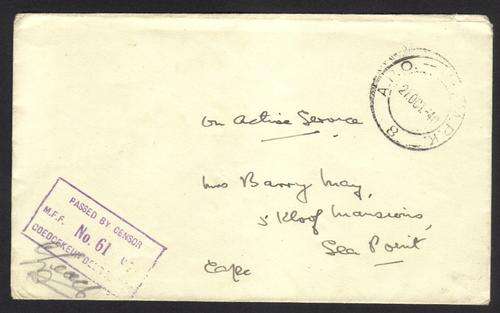 A.P.O.
21 OCT 40
A.P.K.
8
On Active Service
PASSED BY CENSOR
M.F.F. No. 61 U
GOEDGEKEUR DEUR
Mrs Barry May,
5 Kloof Mansions,
Sea Point,
Cape